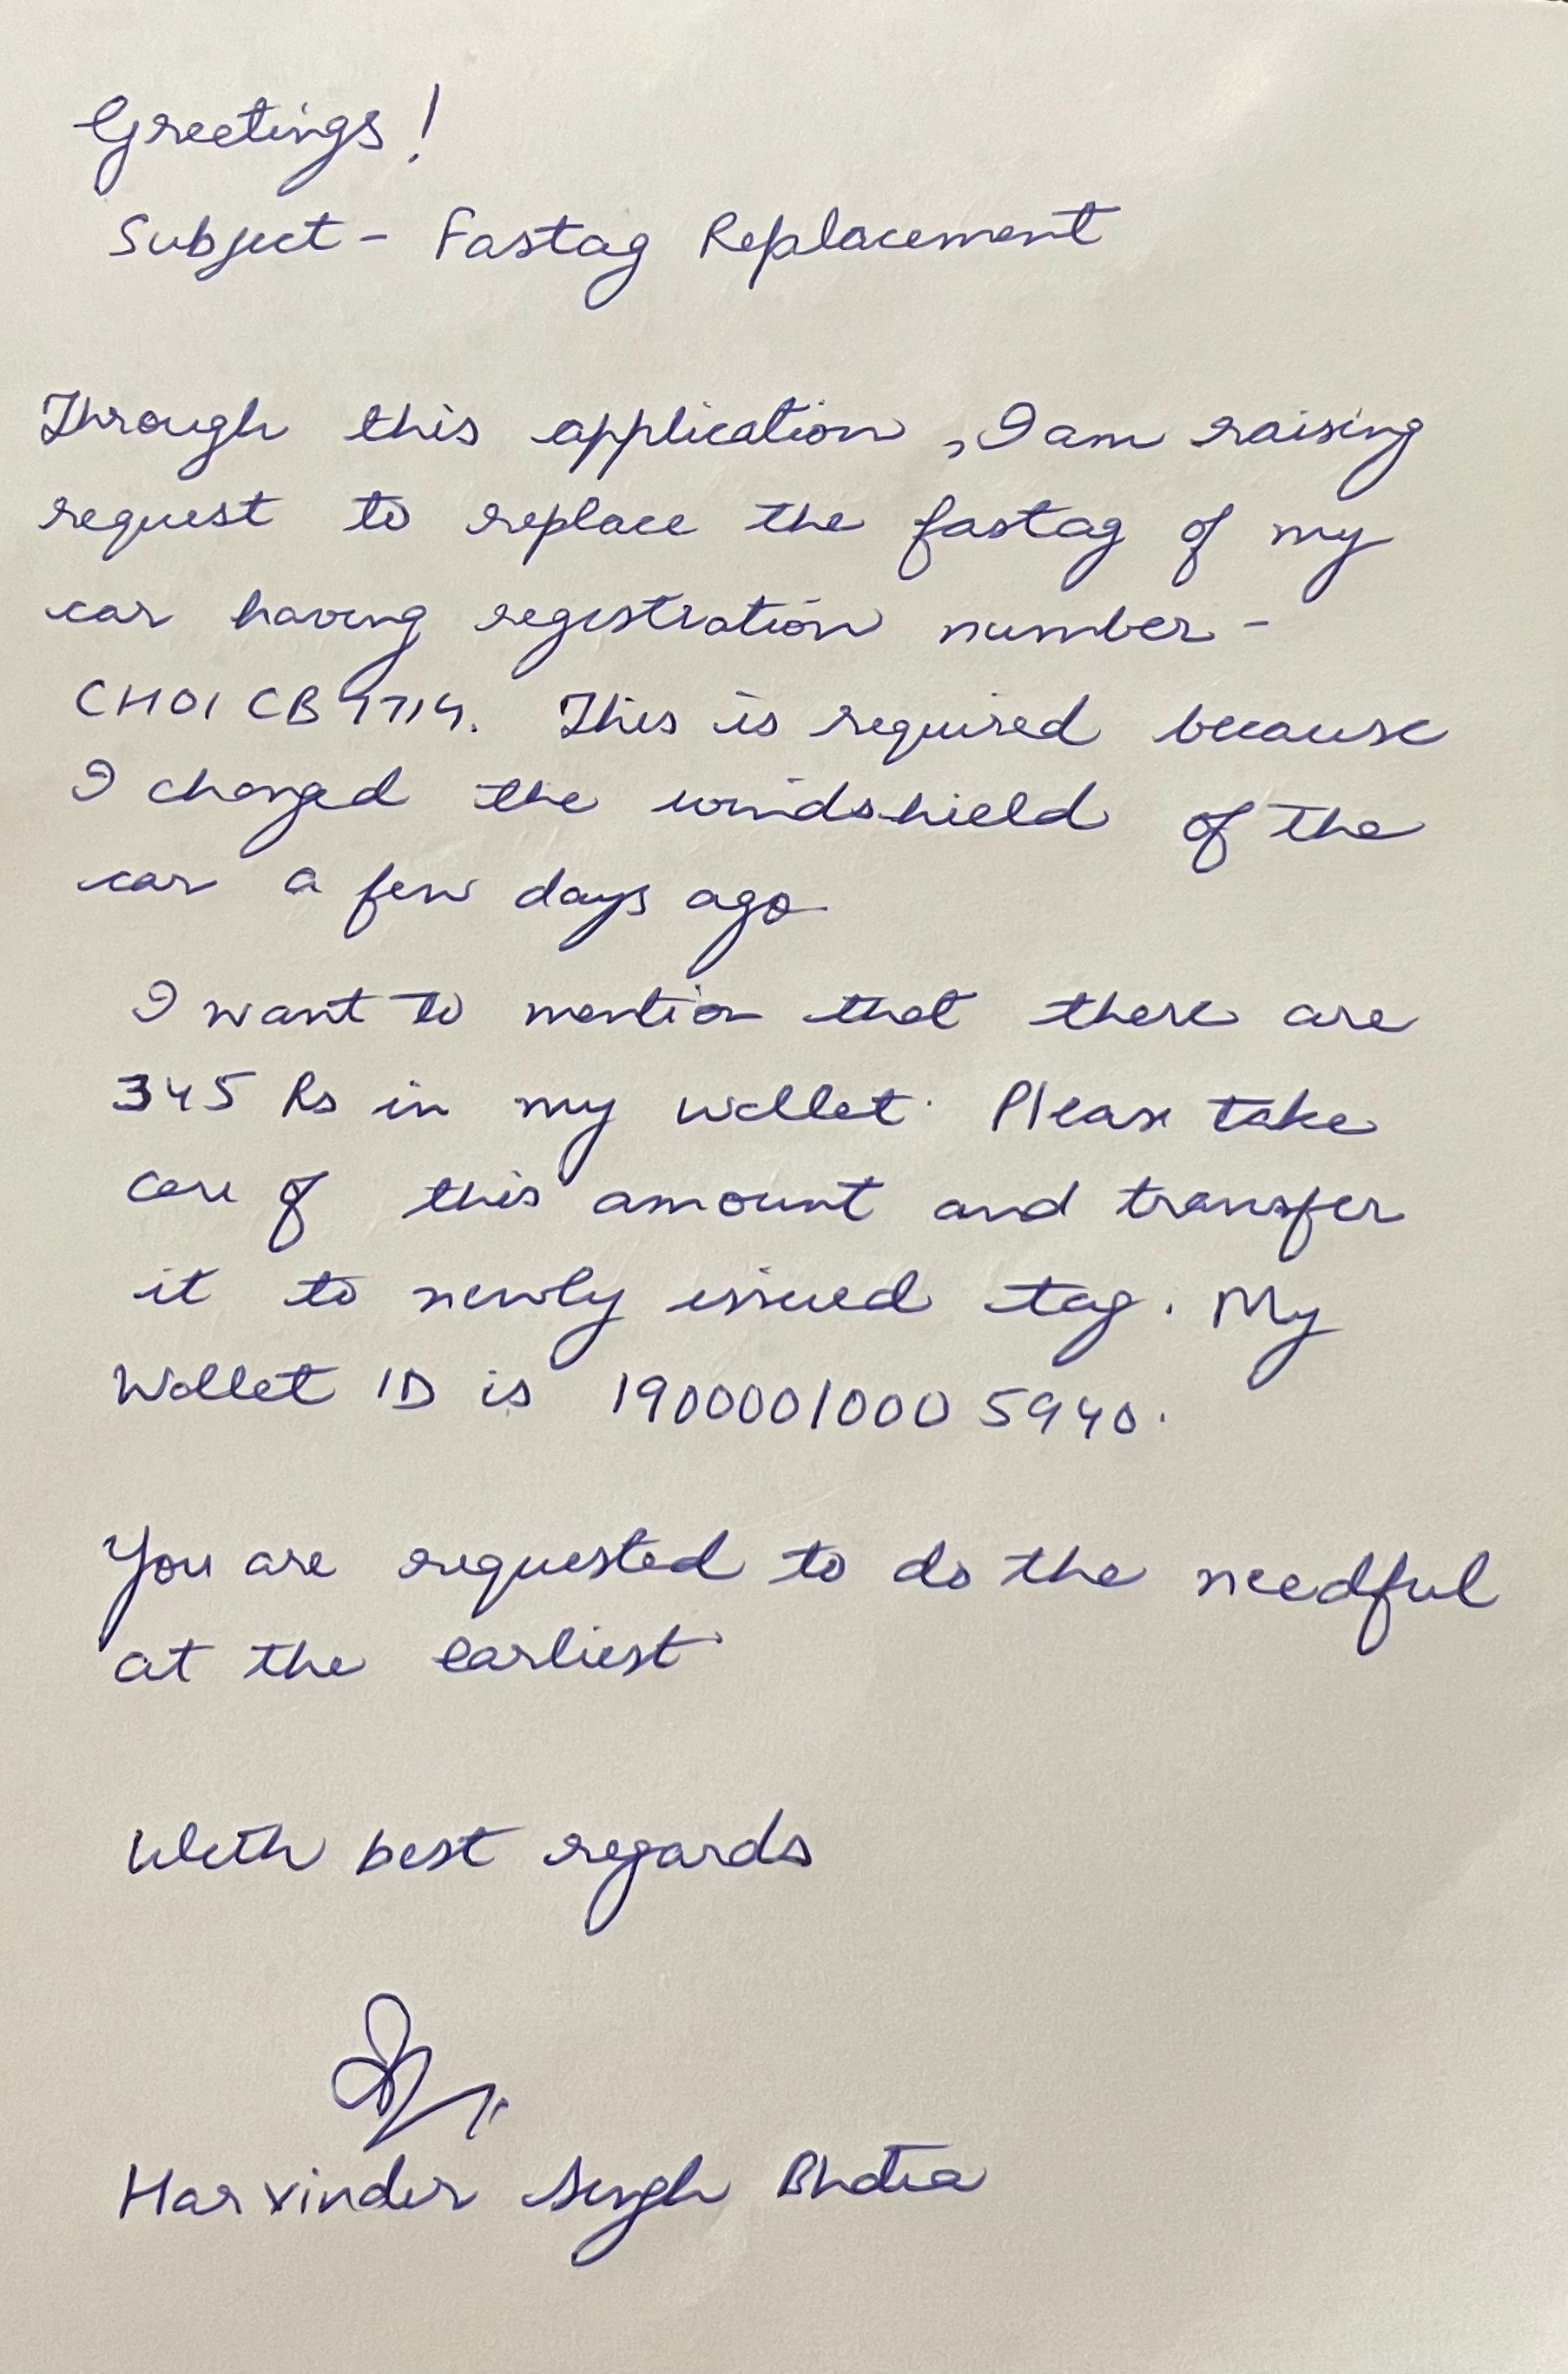 Greetings!
Subject - Fastag Replacement
Through this application, I am raising
request to replace the fastag of my
car having registration number -
CH01 CB 9714. This is required because
I changed the windshield of the
car a few days ago
I want to mention that there are
345 Rs in my wallet. Please take
care of this amount and transfer
it to newly issued tag. My
Wallet ID is 19000010005940.
You are requested to do the needful
at the earliest
With best regards
Harvinder Singh Bhatia